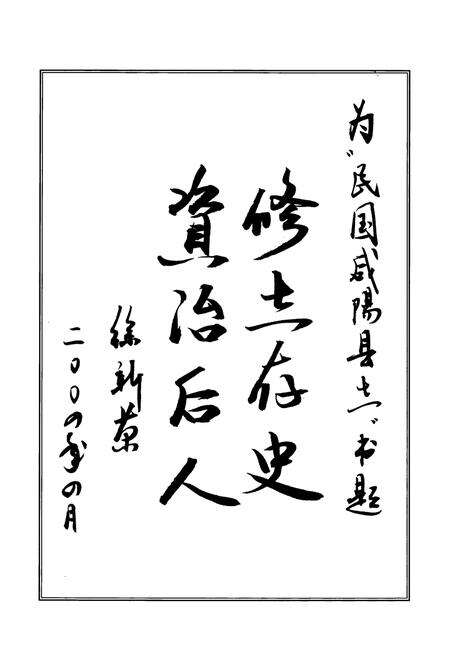 为"民国咸陽县志"书题
修志存史
資治后人
徐新荣
二〇〇四年四月